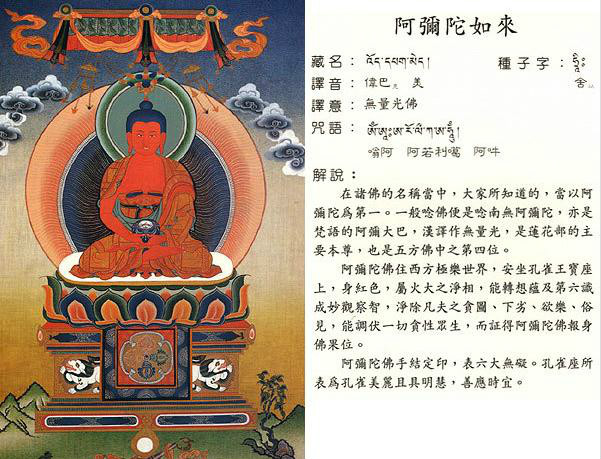 阿彌陀如來
藏名：འོད་དཔག་མེད། 種子字：ཧྲཱིཿ
譯音：偉巴 美 舍
譯意：無量光佛
咒語：
嗡阿 阿若利噶 阿吽
解說：
在諸佛的名稱當中，大家所知道的，當以阿
彌陀為第一。一般唸佛便是唸南無阿彌陀，亦是
梵語的阿彌大巴，漢譯作無量光，是蓮花部的主
要本尊，也是五方佛中之第四位。
阿彌陀佛住西方極樂世界，安坐孔雀王寶座
上，身紅色，屬火大之淨相，能轉想蘊及第六識
成妙觀察智，淨除凡夫之貪圖、下劣、欲樂、俗
見，能調伏一切貪性眾生，而証得阿彌陀佛報身
佛果位。
阿彌陀佛手結定印，表六大無礙。孔雀座所
表為孔雀美麗且具明慧，善應時宜。